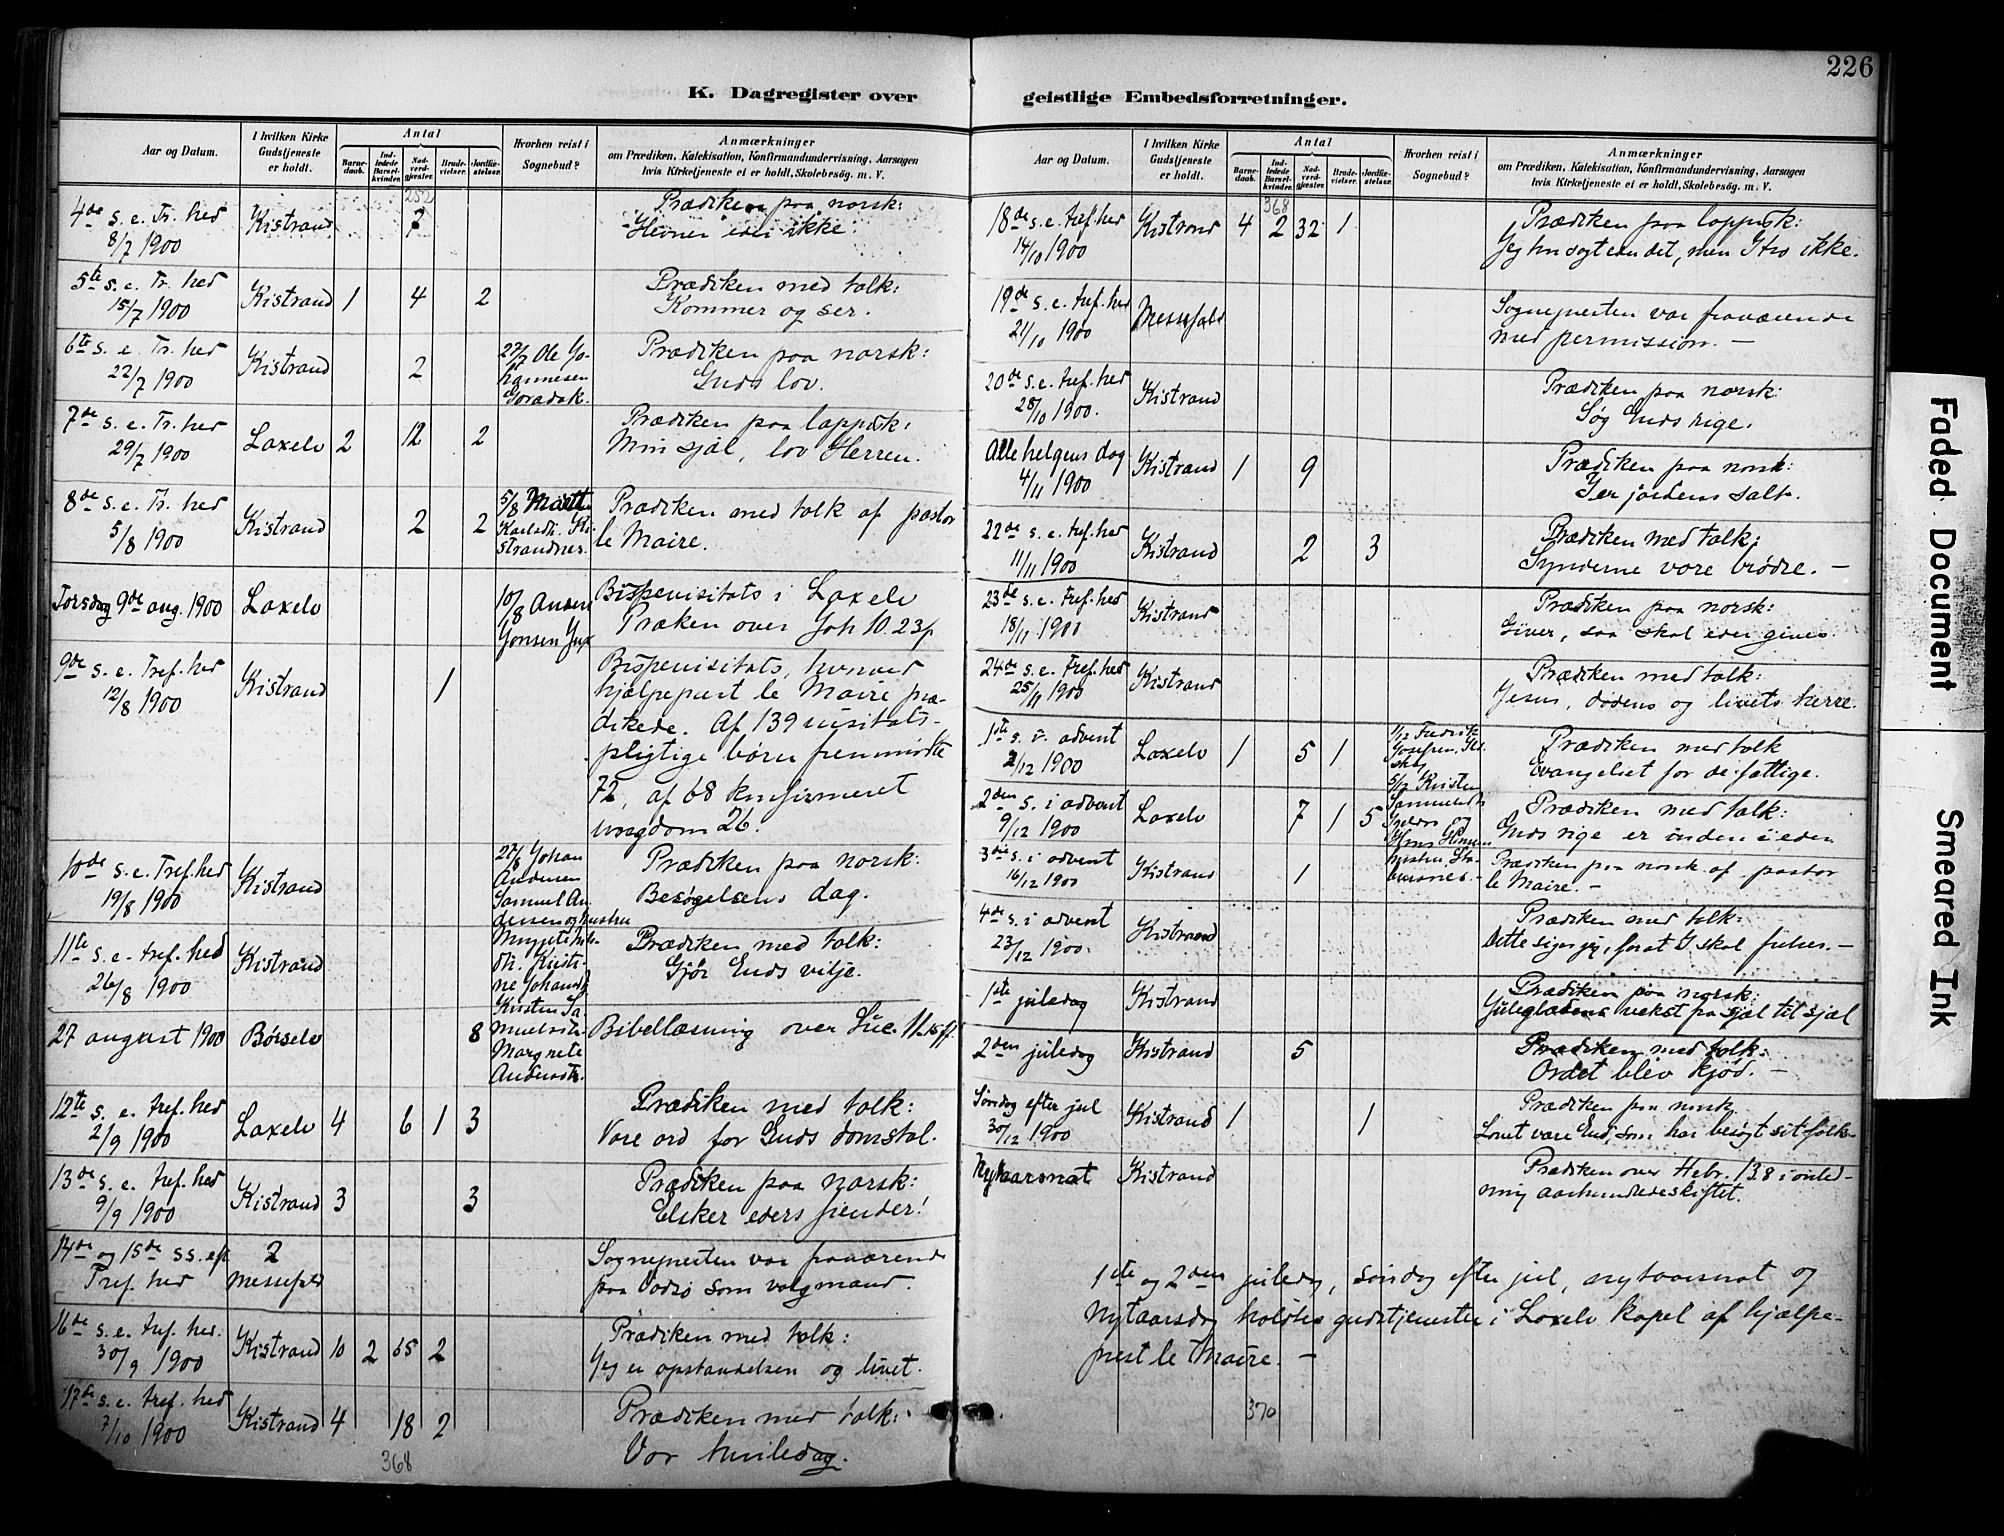 226
K. Dagregister over
geistlige Embedsforretninger.
Aar og Datum.
I hvilken Kirke
Gudstjeneste
er holdt.
Antal
Barne-
daab.
Ind-
ledede
Barsel-
kvinder.
Nad-
verd-
gjester.
Brude-
vielser.
Jordfæ-
stelser.
Hvorhen reist i
Sognebud?
Anmærkninger
om Prædiken, Katekisation, Konfirmandundervisning, Aarsagen
hvis Kirketjeneste ei er holdt, Skolebesøg. m. V.
252
4de s. e. Tr. hed
8/7 1900
Kistrand
7
Prædiken paa norsk:
Hevner eder ikke.
5te s. e. Tr. hed
15/7 1900
Kistrand 1 4 2
Prædiken med tolk:
Kommer og ser.
6te s. e. Tr. hed
22/7 1900
Kistrand 2
27/7 Ole Jo-
hannesen
Prædiken paa norsk:
Guds lov.
7de s. e. Tr. hed
29/7 1900
Laxelv 2 12 2
Prædiken paa lappisk:
Min sjæl, lov Herren.
8de s. e. Tr. hed
5/8 1900
Kistrand 2 2
5/8
Karlsdt. Ki-
strandnes.
Prædiken med tolk af pastor
le Maire.
Torsdag 9de aug. 1900 Laxelv
10/8 Anders
Jonsen
Bispevisitats i Laxelv
Præken over Joh 10.23f
9de s. e. Tref. hed
12/8 1900
Kistrand 1
Bispevisitats, hvorved
hjælpeprest le Maire præ-
dikede. Af 139 visitats-
pligtige børn fremmødte
72, af 68 konfirmeret
ungdom 26.
10de s. e. Tref. hed
19/8 1900
Kistrand
27/8 Johan
Andersen
Samuel An-
dersen og hustru
Prædiken paa norsk:
Besøgelsens dag.
11te s. e. tref. hed
26/8 1900
Kistrand
dt. Kristi-
ne Johansdt
Kirsten Sa-
muelsdt.
Margrete
Andersdt.
Prædiken med tolk:
Gjør Guds vilje.
27 august 1900 Børselv 8
Bibellæsning over Luc 11.15ff.
12te s. e. tref. hed
2/9 1900
Laxelv 4 6 1 3
Prædiken med tolk:
Vore ord for Guds domstol.
13de s. e. tref. hed
9/9 1900
Kistrand 3 3
Prædiken paa norsk:
Elsker eders fiender!
14de og 15de ss. eft.
Tref. hed
2
messefald
Sognepresten var fraværende
paa Vadsø som valgmand.
16de
s. e. tref. hed.
30/9 1900
Kistrand 10 2 65 2
Prædiken med tolk:
Jeg er opstandelsen og livet.
17de
s. e. tref. hed
7/10 1900
Kistrand 4 18 2
Prædiken med tolk:
Vor hviledag.
368
Aar og Datum.
I hvilken Kirke
Gudstjeneste
er holdt.
Antal
Barne-
daab.
Ind-
ledede
Barsel-
kvinder.
Nad-
verd-
gjester.
Brude-
vielser.
Jordfæ-
stelser.
Hvorhen reist i
Sognebud?
Anmærkninger
om Prædiken, Katekisation, Konfirmandundervisning, Aarsagen
hvis Kirketjeneste ei er holdt, Skolebesøg. m. V.
368
18de s. e. tref. hed
14/10 1900
Kistrand 4 2 32 1
Prædiken paa lappisk:
Jeg har sagt eder det, men I tro ikke.
19de s. e. tref. hed
21/10 1900
Messefald
Sognepresten var fraværende
med permission. —
20de s. e. tref. hed
28/10 1900.
Kistrand
Prædiken paa norsk:
Søg Guds rige.
Alle helgens dag
4/11 1900
Kistrand 1 9
Prædiken paa norsk:
I er jordens salt.
22de s. e. tref. hed
11/11 1900
Kistrand 2 3
Prædiken med tolk:
Synderne vore brødre. —
23de s. e. Tref. hed
18/11 1900
Kistrand
Prædiken paa norsk:
Giver, saa skal eder gives.
24de s. e. Tref. hed
25/11 1900
Kistrand
Prædiken med tolk:
Jesus, dødens og livets herre.
1ste s. i. advent
2/12 1900
Laxelv 1 5 1
1/12 Fredrik
Josefsen
Prædiken med tolk
Evangeliet for de fattige.
2den s. i advent
9/12 1900
Laxelv 7 1 5
5/12 Kristen
Samuelsdt
Prædiken med tolk:
Guds rige er inden i eder
3die s. i advent
16/12 1900
Kistrand 1
Prædiken paa norsk af pastor
le Maire. —
4de s. i advent
23/12 1900.
Kistrand
Prædiken med tolk:
Dette siger jeg, forat I skal frelses. —
1ste juledag Kistrand
Prædiken paa norsk:
Juleglædens vekst fra sjæl til sjæl
2den juledag Kistrand 5
Prædiken med tolk:
Ordet blev kjød. —
Søndag efter jul
30/12 1900
Kistrand 1 1
Prædiken paa norsk
Lovet være Gud, som har besøgt sit folk.
Nytaarsnat Kistrand
Prædiken over Hebr. 13.8 i anled-
ning aarhundredeskiftet.
1ste og 2den juledag, søndag efter jul, nytaarsnat og
nytaarsdag holdtes gudstjenester i Laxelv kapel af hjælpe-
prest le Maire. —
370
Faded Document
Smeared Ink